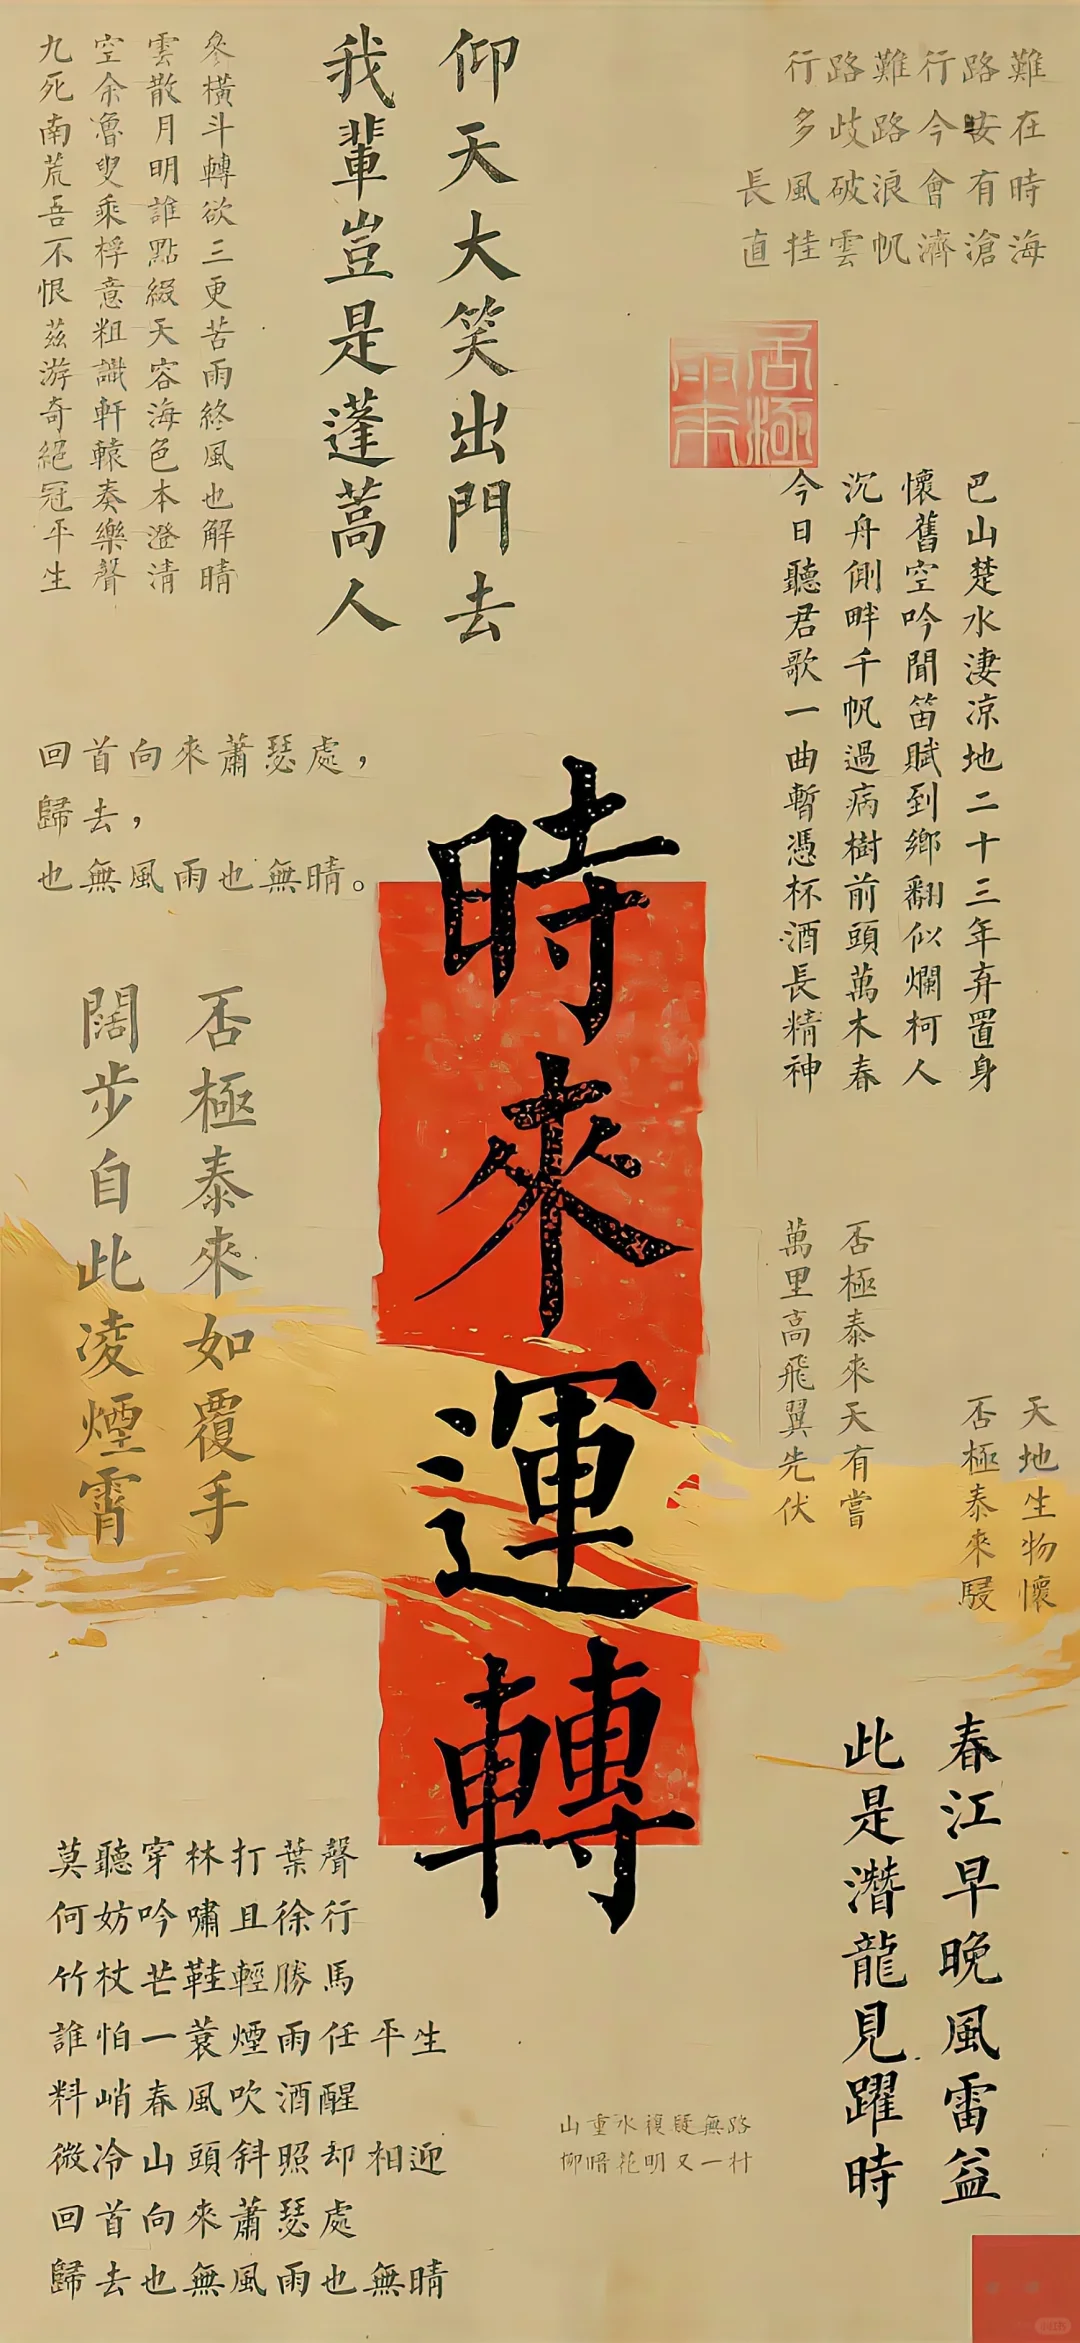 行路難行路難
多歧路今安在
長風破浪會有時
直挂雲帆濟滄海
仰天大笑出門去
我輩豈是蓬蒿人
參橫斗轉欲三更苦雨終風也解晴
雲散月明誰點綴天容海色本澄清
空余魯叟乘桴意粗識軒轅奏樂聲
九死南荒吾不恨茲游奇絕冠平生
否極
巴山楚水淒涼地二十三年弃置身
懷舊空吟聞笛賦到鄉翻似爛柯人
沉舟側畔千帆過病樹前頭萬木春
今日聽君歌一曲暫憑杯酒長精神
回首向來蕭瑟處，
歸去，
也無風雨也無晴。
時來運轉
否極泰來如覆手
闊步自此凌煙霄
否極泰來天有嘗
萬里高飛翼先伏
天地生物懷
否極泰來
春江早晚風雷益
此是潛龍見躍時
莫聽穿林打葉聲
何妨吟嘯且徐行
竹杖芒鞋輕勝馬
誰怕一蓑煙雨任平生
料峭春風吹酒醒
微冷山頭斜照却相迎
回首向來蕭瑟處
歸去也無風雨也無晴
山重水複疑無路
柳暗花明又一村